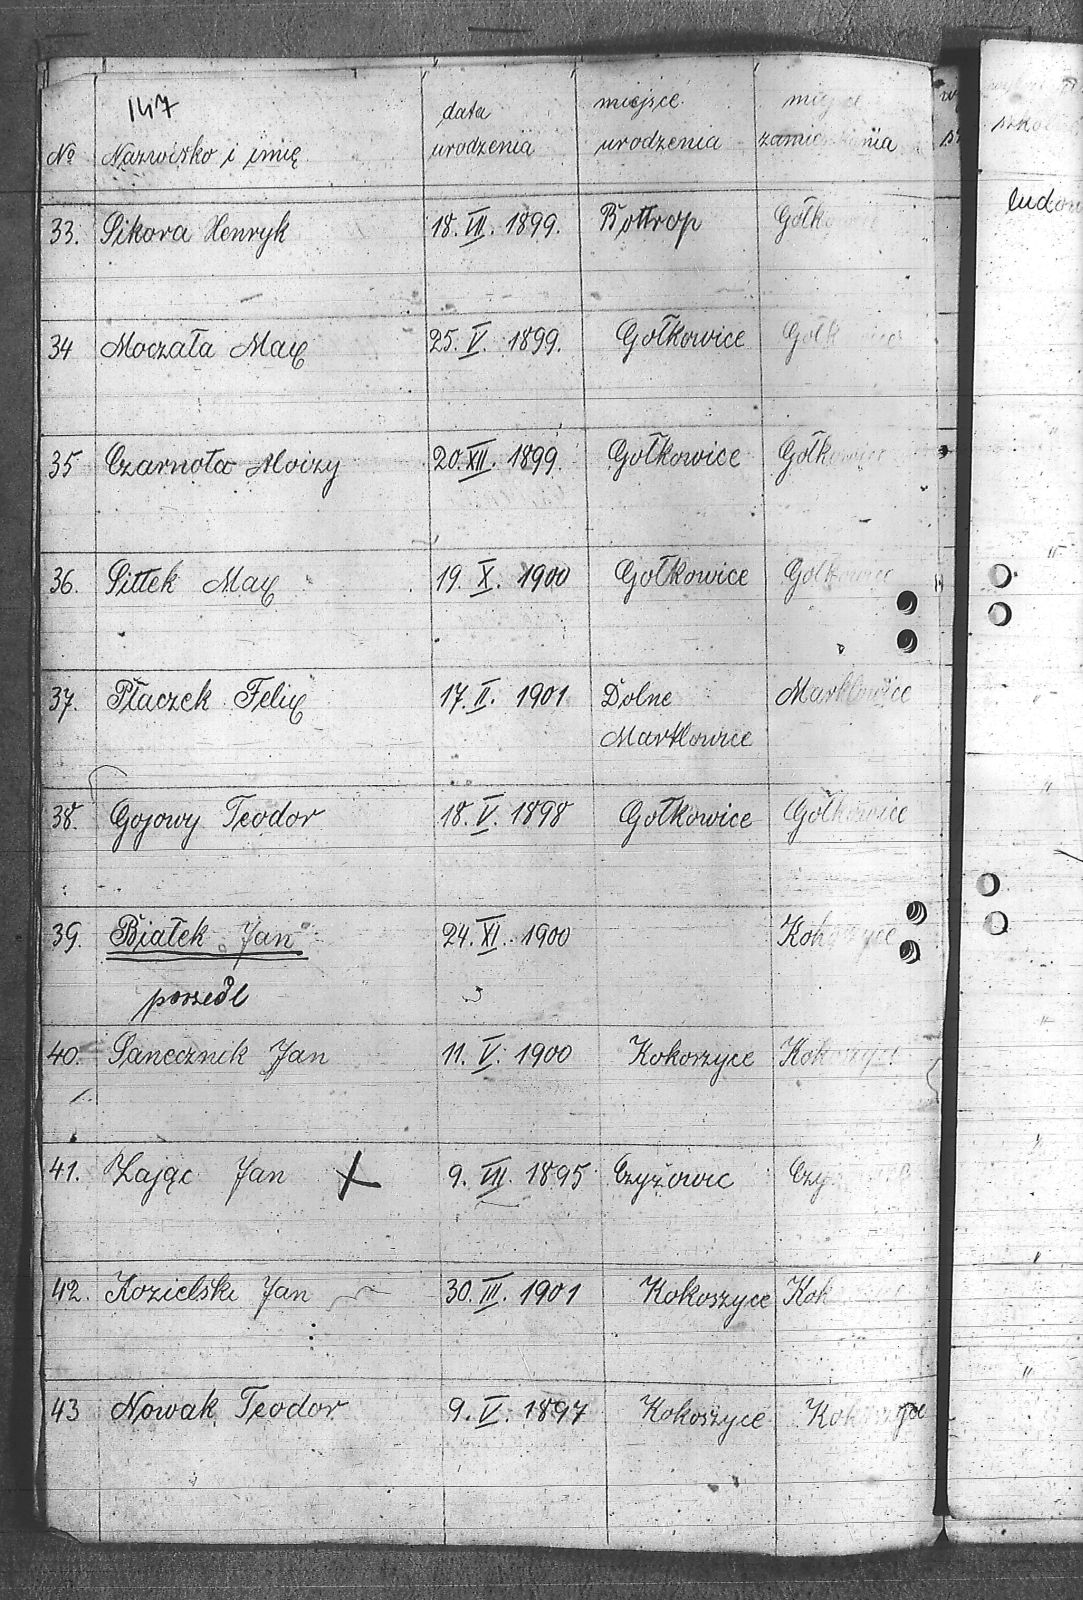 147
№ Nazwisko i imię data urodzenia miejsce urodzenia zamieszkania
33. Sikora Henryk 18. VII. 1899. Bottrop Gołk
34 Moczała Max 25. V. 1899. Gołkowice Gołkowice
35 Czarnota Aloizy 20. XII. 1899. Gołkowice Gołkowice
36. Pittek Max 19. X. 1900 Gołkowice Gołkowice
37. Płaczek Felix 17. II. 1901 Dolne Marklowice
Marklowice
38. Gojowy Teodor 18. V. 1898 Gołkowice Gołkowice
39. Białek „Jan" 24. XI. 1900 Kokoszyce
poszedł
40. Panecznik Jan 11. V. 1900 Kokoszyce Kokoszyce
41. Zając Jan X 9. VII. 1895 Czyżowic Czy
42. Kozielski Jan 30. III. 1901 Kokoszyce Kok
43 Nowak Teodor 9. V. 1897 Kokoszyce Kokoszyce
ludow